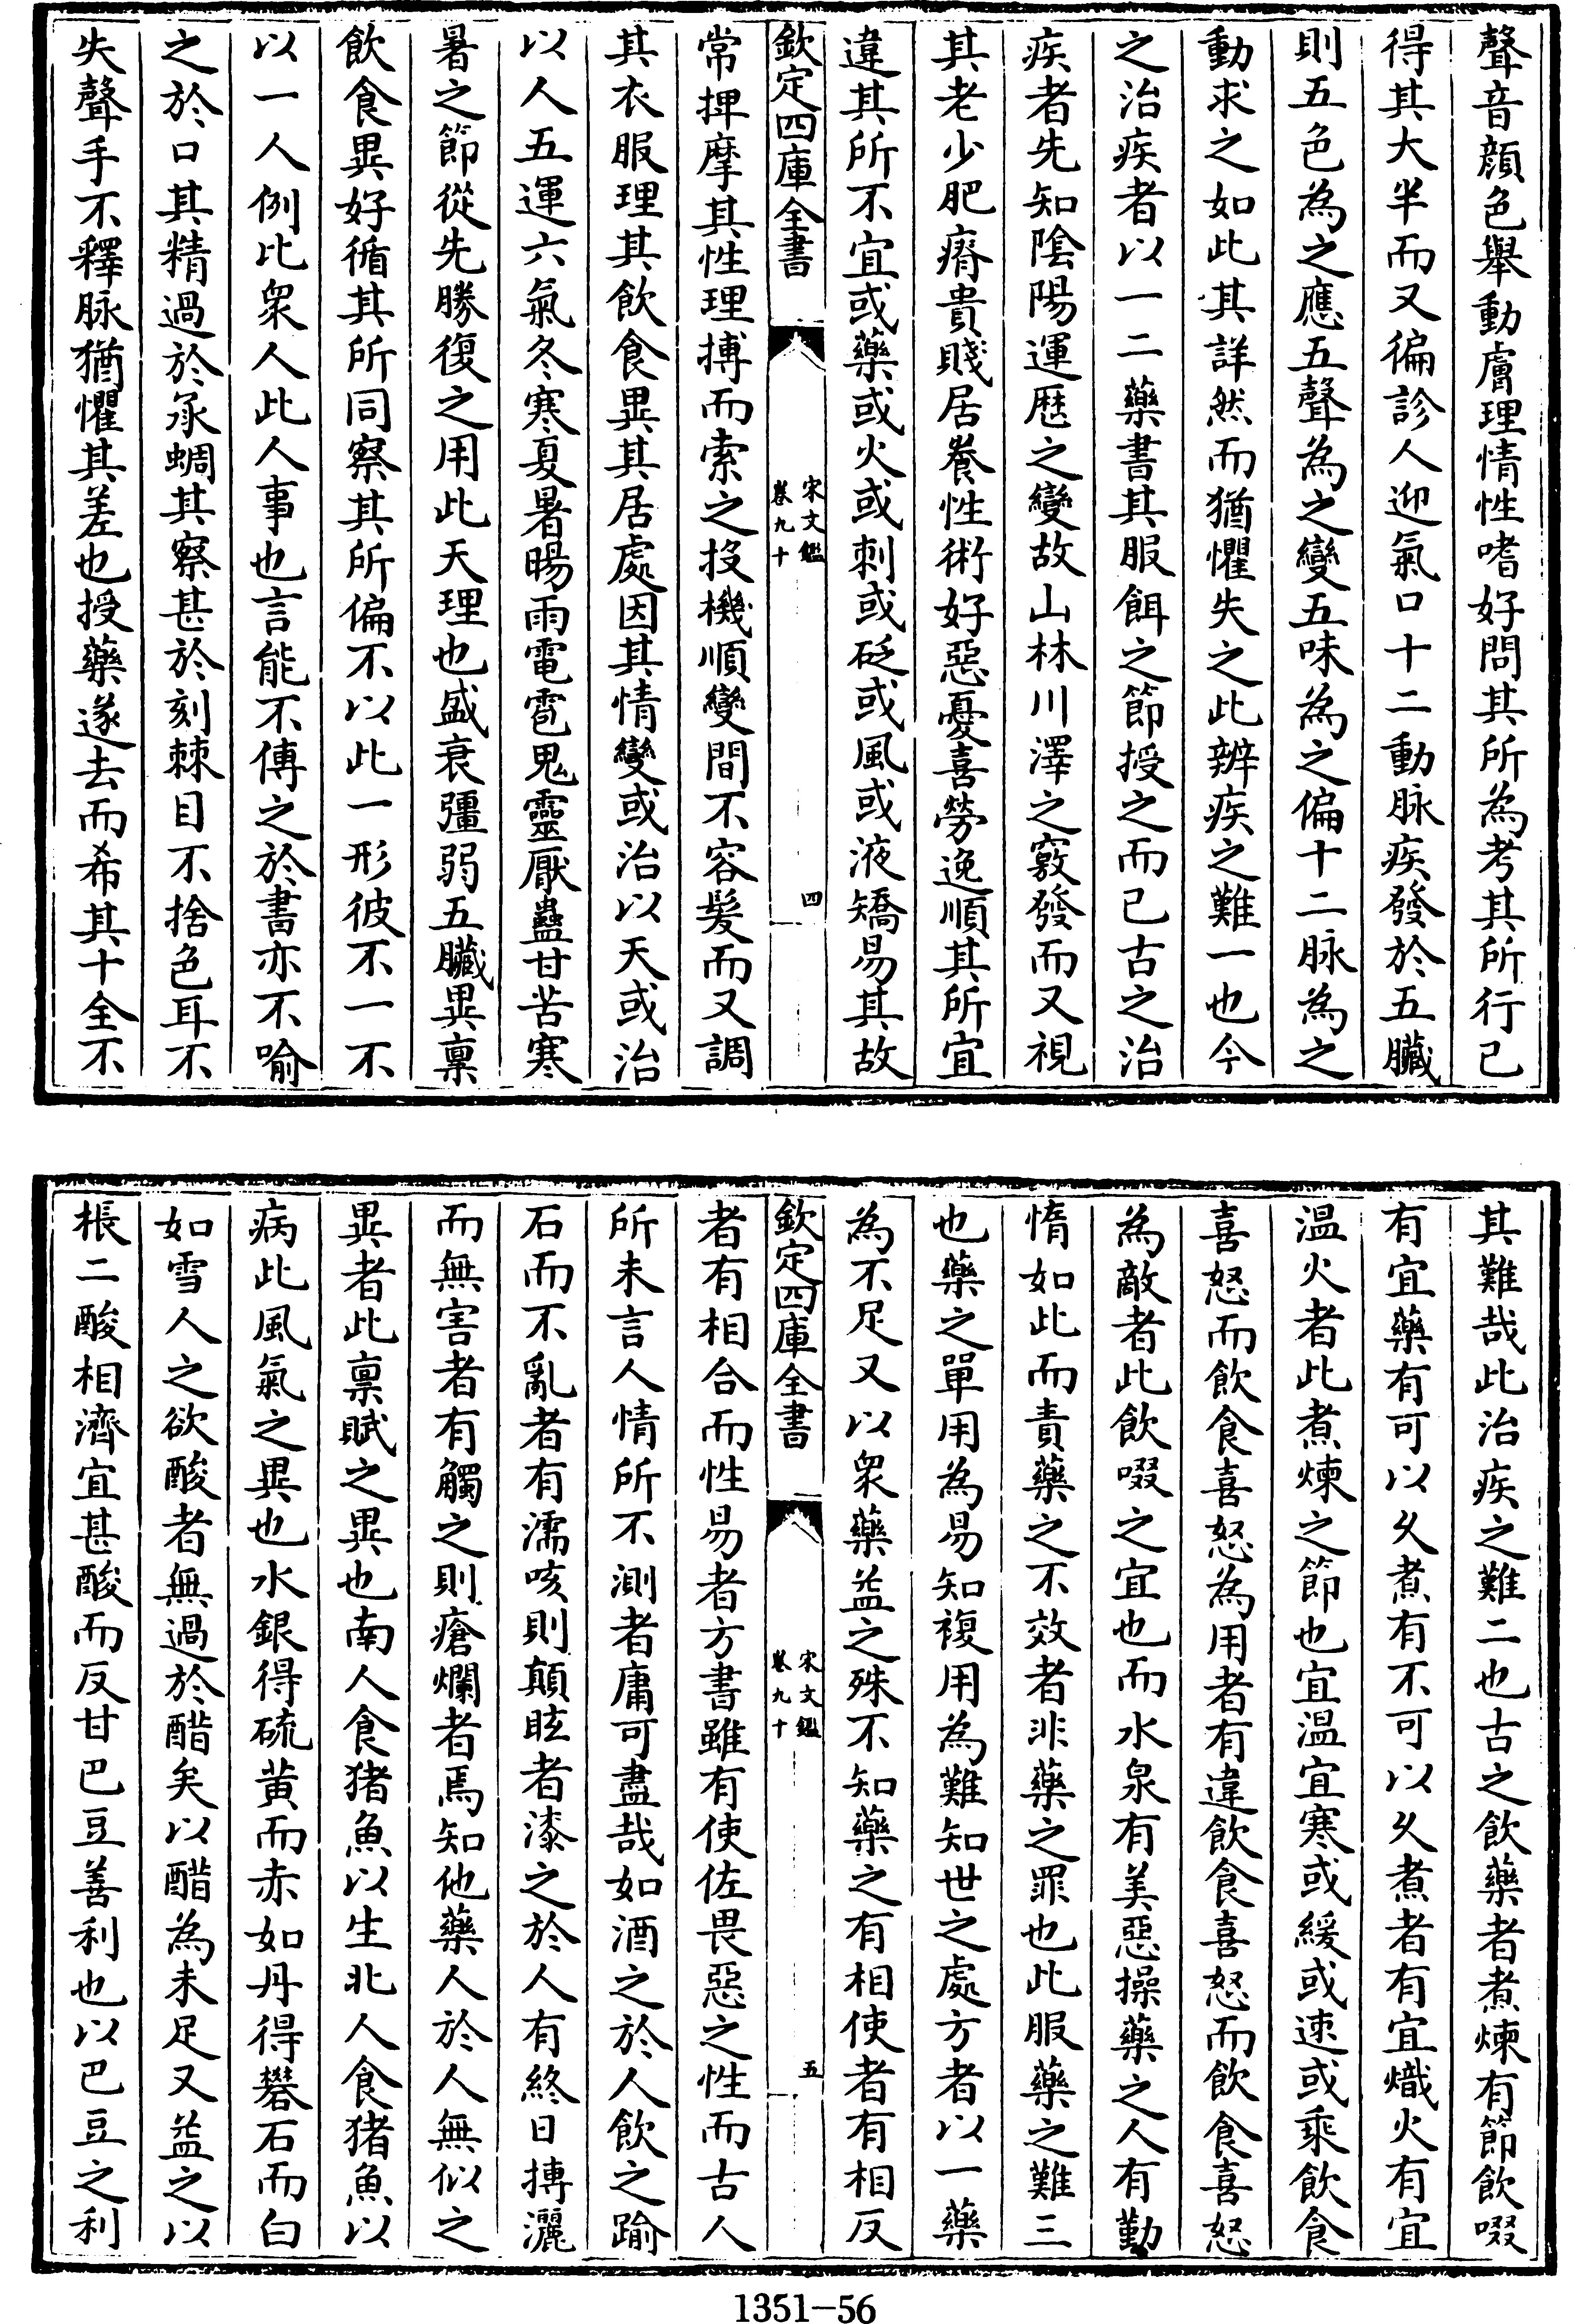 聲音顔色舉動膚理情性嗜好問其所為考其所行已
得其大半而又徧診人迎氣口十二動脉疾發於五臟
則五色為之應五聲為之變五味為之偏十二脉為之
動求之如此其詳然而猶懼失之此辨疾之難一也今
之治疾者以一二藥書其服餌之節授之而已古之治
疾者先知隂陽運歴之變故山林川澤之竅發而又視
其老少肥瘠貴賤居養性術好惡憂喜勞逸順其所宜
違其所不宜或藥或火或刺或砭或風或液矯易其故
欽定四庫全書
宋文鑑
卷九十
四
常捭摩其性理搏而索之投機順變間不容髪而又調
其衣服理其飲食異其居處因其情變或治以天或治
以人五運六氣冬寒夏暑暘雨電雹鬼靈厭蠱甘苦寒
暑之節從先勝復之用此天理也盛衰彊弱五臟異稟
飲食異好循其所同察其所偏不以此一形彼不一不
以一人例比衆人此人事也言能不傳之於書亦不喻
之於口其精過於承蜩其察甚於刻棘目不捨色耳不
失聲手不釋脉猶懼其差也授藥遂去而希其十全不
其難哉此治疾之難二也古之飲藥者煮煉有節飲啜
有宜藥有可以久煮有不可以久煮者有宜熾火有宜
温火者此煮煉之節也宜温宜寒或緩或速或乘飲食
喜怒而飲食喜怒為用者有違飲食喜怒而飲食喜怒
為敵者此飲啜之宜也而水泉有美惡操藥之人有勤
惰如此而責藥之不效者非藥之罪也此服藥之難三
也藥之單用為易知複用為難知世之處方者以一藥
為不足又以衆藥益之殊不知藥之有相使者有相反
欽定四庫全書
宋文鑑
卷九十
五
者有相合而性易者方書雖有使佐畏惡之性而古人
所未言人情所不測者庸可盡哉如酒之於人飲之踰
石而不亂者有濡咳則顛眩者漆之於人有終日摶灑
而無害者有觸之則瘡爛者焉知他藥人於人無似之
異者此稟賦之異也南人食猪魚以生北人食猪魚以
病此風氣之異也水銀得硫黄而赤如丹得礬石而白
如雪人之欲酸者無過於醋矣以醋為未足又益之以
棖二酸相濟宜甚酸而反甘巴豆善利也以巴豆之利
1351-56